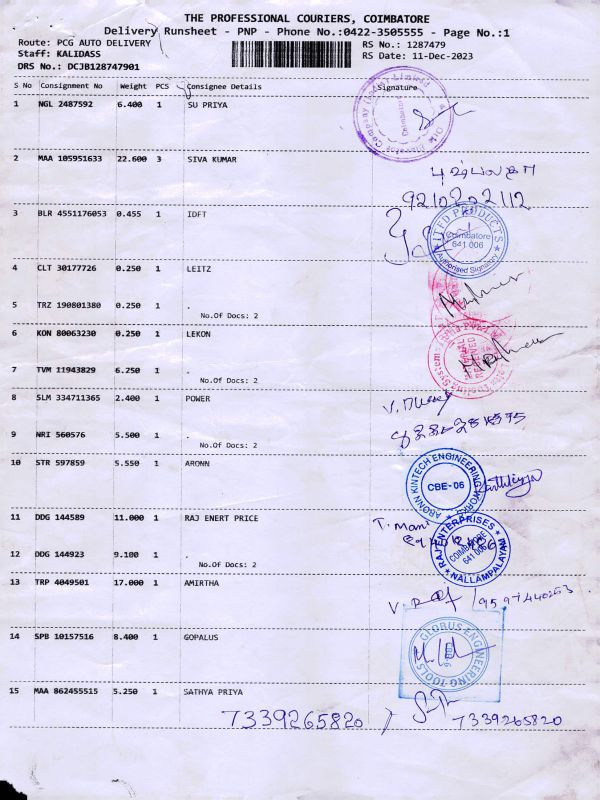 THE PROFESSIONAL COURIERS, COIMBATORE
Delivery Runsheet - PNP - Phone No.:0422-3505555 - Page No.:1
Route: PCG AUTO DELIVERY RS No.: 1287479
Staff: KALIDASS RS Date: 11-Dec-2023
DRS No.: DCJB128747901
S No Consignment No Weight PCS Consignee Details Signature
1 NGL 2487592 6.400 1 SU PRIYA
Coimbatore
2 MAA 105951633 22.600 3 SIVA KUMAR
9210202112
3 BLR 4551176053 0.455 1 IDFT
ITED PRODUCTS
Coimbatore
641 006
Authorised Signatory
4 CLT 30177726 0.250 1 LEITZ
5 TRZ 190801380 0.250 1 .
No.Of Docs: 2
6 KON 80063230 0.250 1 LEKON
7 TVM 11943829 6.250 1 .
No.Of Docs: 2
8 SLM 334711365 2.400 1 POWER
9 NRI 560576 5.500 1 .
No.Of Docs: 2
10 STR 597859 5.550 1 ARONN
ARONN KINTECH ENGINEERING WORKS
CBE-06
11 DDG 144589 11.000 1 RAJ ENERT PRICE
T. Mani
RAJ ENTERPRISES
COIMBATORE
641 006
NALLAMPALAYAM
12 DDG 144923 9.100 1 .
No.Of Docs: 2
13 TRP 4049501 17.000 1 AMIRTHA
14 SPB 10157516 8.400 1 GOPALUS
GLOBUS ENGINEERING TOOLS
15 MAA 862455515 5.250 1 SATHYA PRIYA
7339265820 / 7339265820